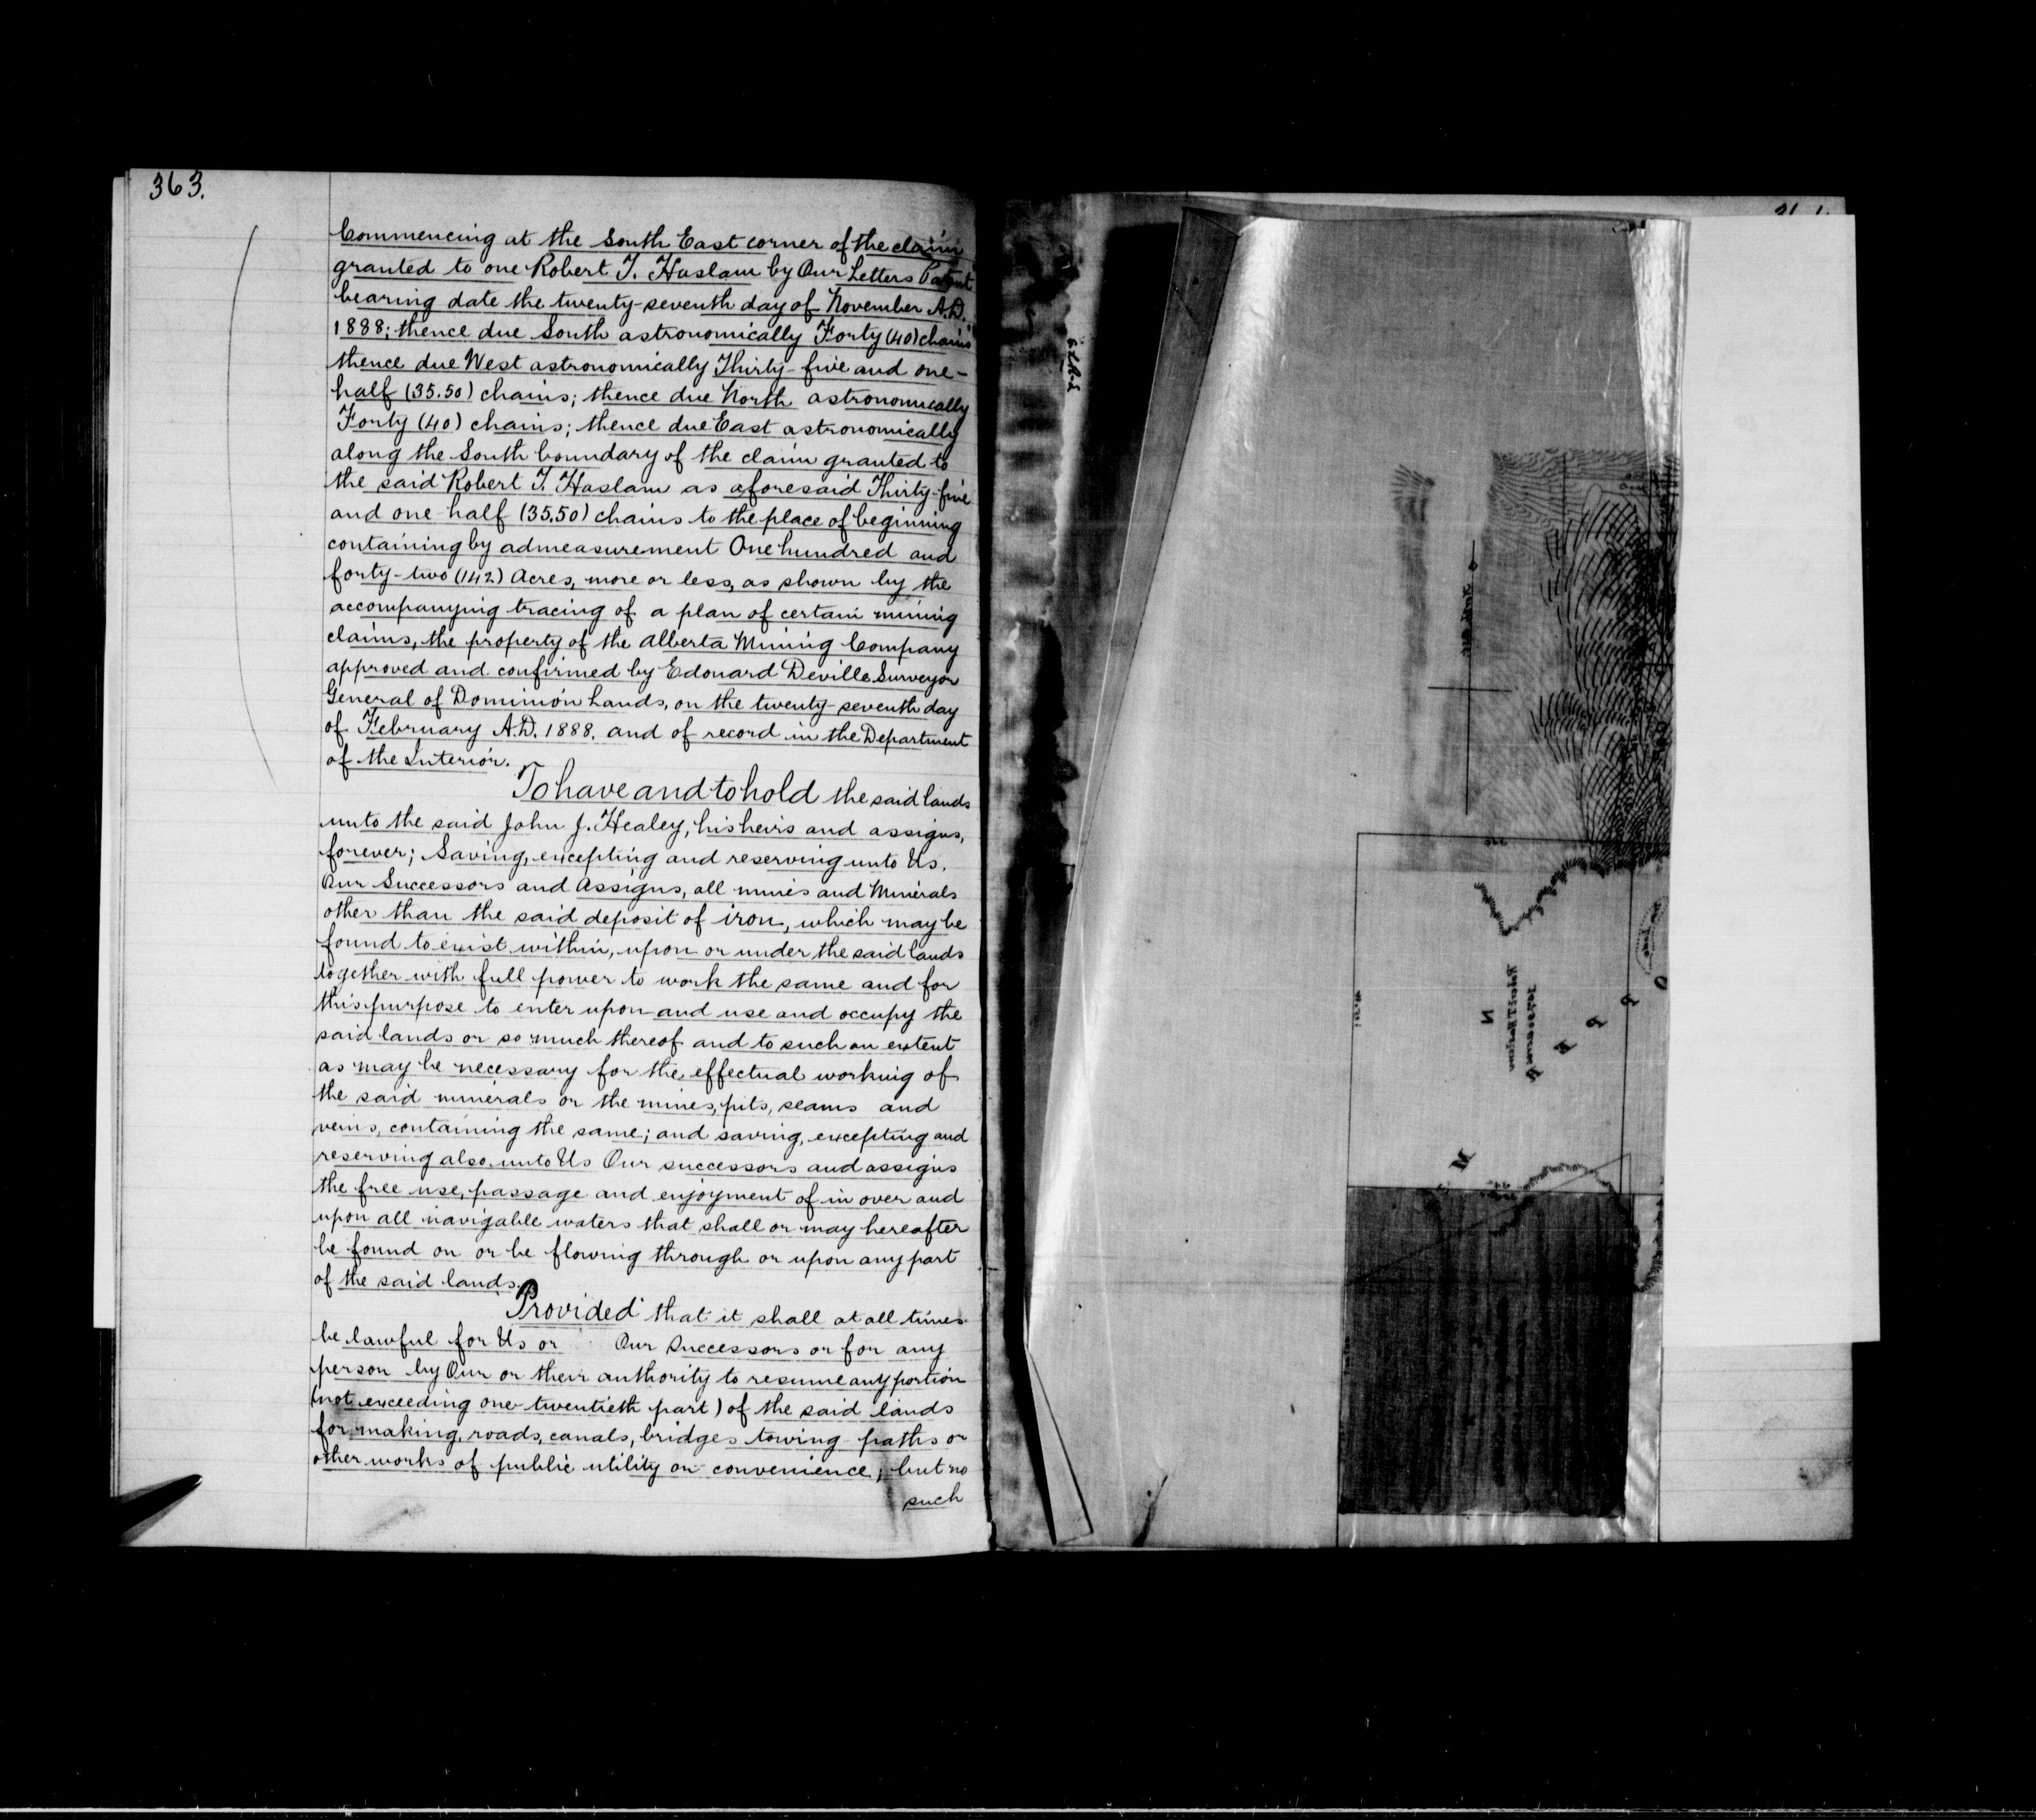 363.
Commencing at the South East corner of the claim
granted to one Robert T. Haslam by Our Letters Patent
bearing date the twenty-seventh day of November A.D.
1888; thence due South astronomically Forty (40) chains
thence due West astronomically Thirty-five and one-
half (35.50) chains; thence due North astronomically
Forty (40) chains; thence due East astronomically
along the South boundary of the claim granted to
the said Robert T. Haslam as aforesaid Thirty-five
and one half (35.50) chains to the place of beginning
containing by admeasurement One hundred and
forty-two (142) Acres, more or less, as shown by the
accompanying tracing of a plan of certain mining
claims, the property of the Alberta Mining Company
approved and confirmed by Edouard Deville Surveyor
General of Dominion Lands, on the twenty-seventh day
of February A.D. 1888. and of record in the Department
of the Interior.
To have and to hold the said lands
unto the said John J. Healey, his heirs and assigns,
forever; Saving, excepting and reserving unto Us,
Our Successors and Assigns, all mines and Minerals
other than the said deposit of iron, which may be
found to exist within, upon or under the said lands
together with full power to work the same and for
this purpose to enter upon and use and occupy the
said lands or so much thereof and to such an extent
as may be necessary for the effectual working of
the said minerals or the mines, pits, seams and
veins, containing the same; and saving, excepting and
reserving also unto Us Our successors and assigns
the free use, passage and enjoyment of in over and
upon all navigable waters that shall or may hereafter
be found on or be flowing through or upon any part
of the said lands.
Provided that it shall at all times
be lawful for Us or Our Successors or for any
person by Our or their authority to resume any portion
(not exceeding one-twentieth part) of the said lands
for making, roads, canals, bridges towing-paths or
other works of public utility or convenience; but no
such
N
M